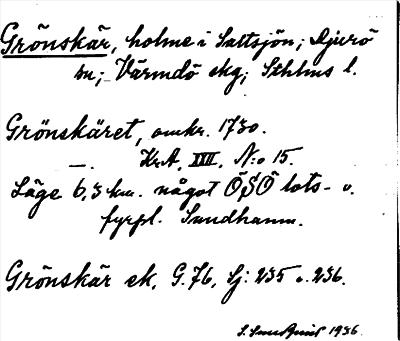 Grönskär, holme i Saltsjön; Djurö
sn; Värmdö skg; Sthlms l.
Grönskäret, omkr. 1730.
—. KrA, XXII, N:o 15.
Läge 6,3 km. något ÖSÖ lots- o.
fyrpl. Sandhamn.
Grönskär ek, G.76, Sj: 235 o. 236.
1936.